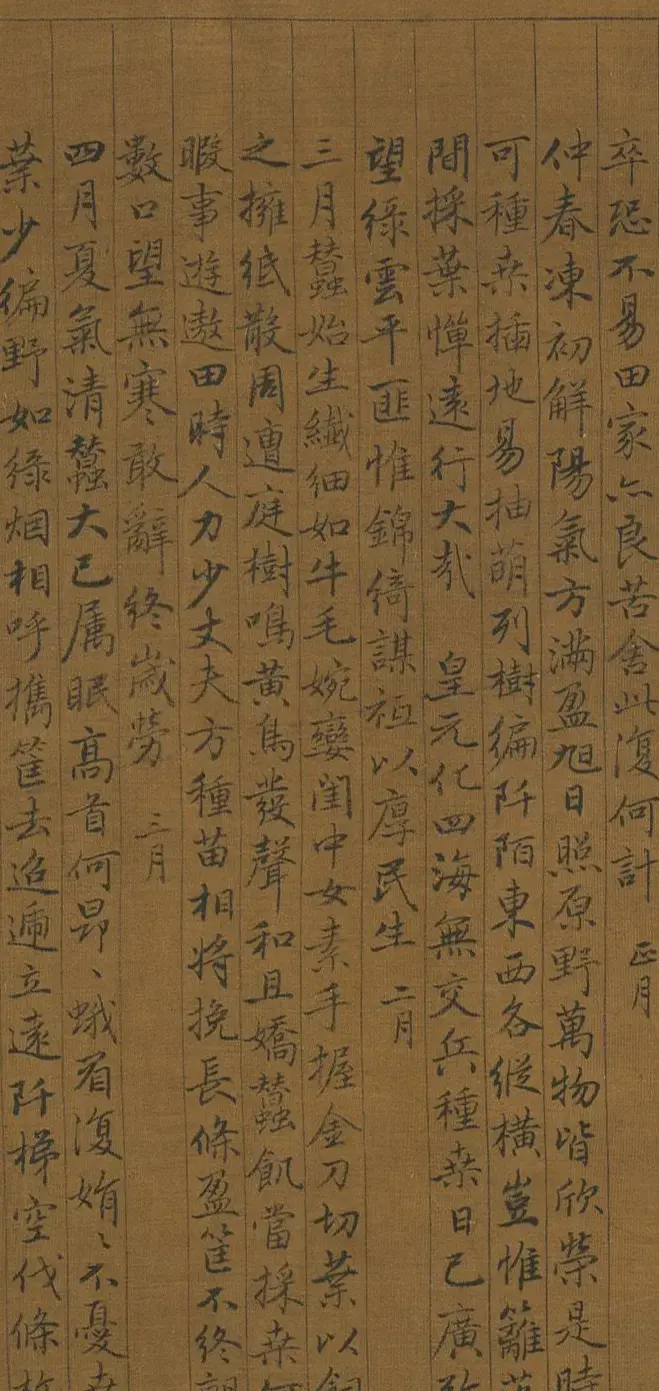 卒恐不易田家亦良苦舍此復何計 正月
仲春凍初解陽氣方滿盈旭日照原野萬物皆欣榮是時
可種桒插地易抽萌列樹徧阡陌東西各縱橫豈惟籬
間採葉憚遠行大哉 皇元化四海無交兵種桒日已廣
望綠雲平匪惟錦綺謀祗以厚民生 二月
三月蠶始生纖細如牛毛婉孌閨中女素手握金刀切葉以飼
之擁紙散周遭庭樹鳴黃鳥發聲和且嬌蠶飢當採桒何
暇事遊遨田時人力少丈夫方種苗相將挽長條盈筐不終朝
數口望無寒敢辭終歲勞 三月
四月夏氣清蠶大已属眠高首何昂、蛾眉復娟、不憂桒
葉少徧野如綠烟相呼攜筐去迢遞立遠阡梯空伐條